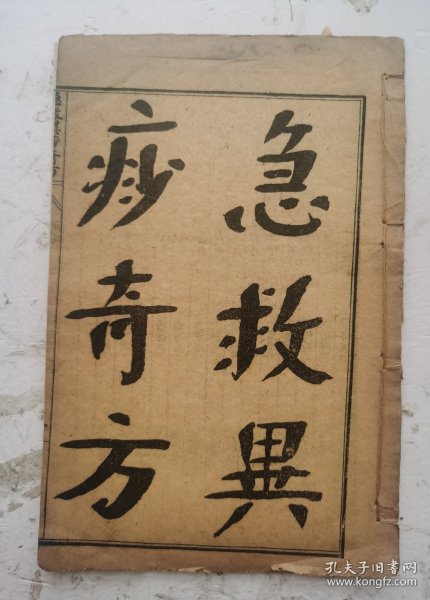 急救異
痧奇方
孔夫子旧书网
www.kongfz.com